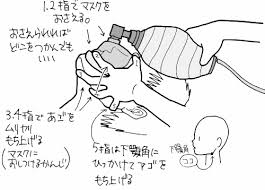 1.2指でマスクを
おさえる。
おさえられれば
どこをつかんでも
いい
3.4指であごを
ムリヤリ
もち上げる
(マスクに
おしつけるかんじ)
5指は下顎角に
ひっかけてアゴを
もち上げる
下顎角
ココ